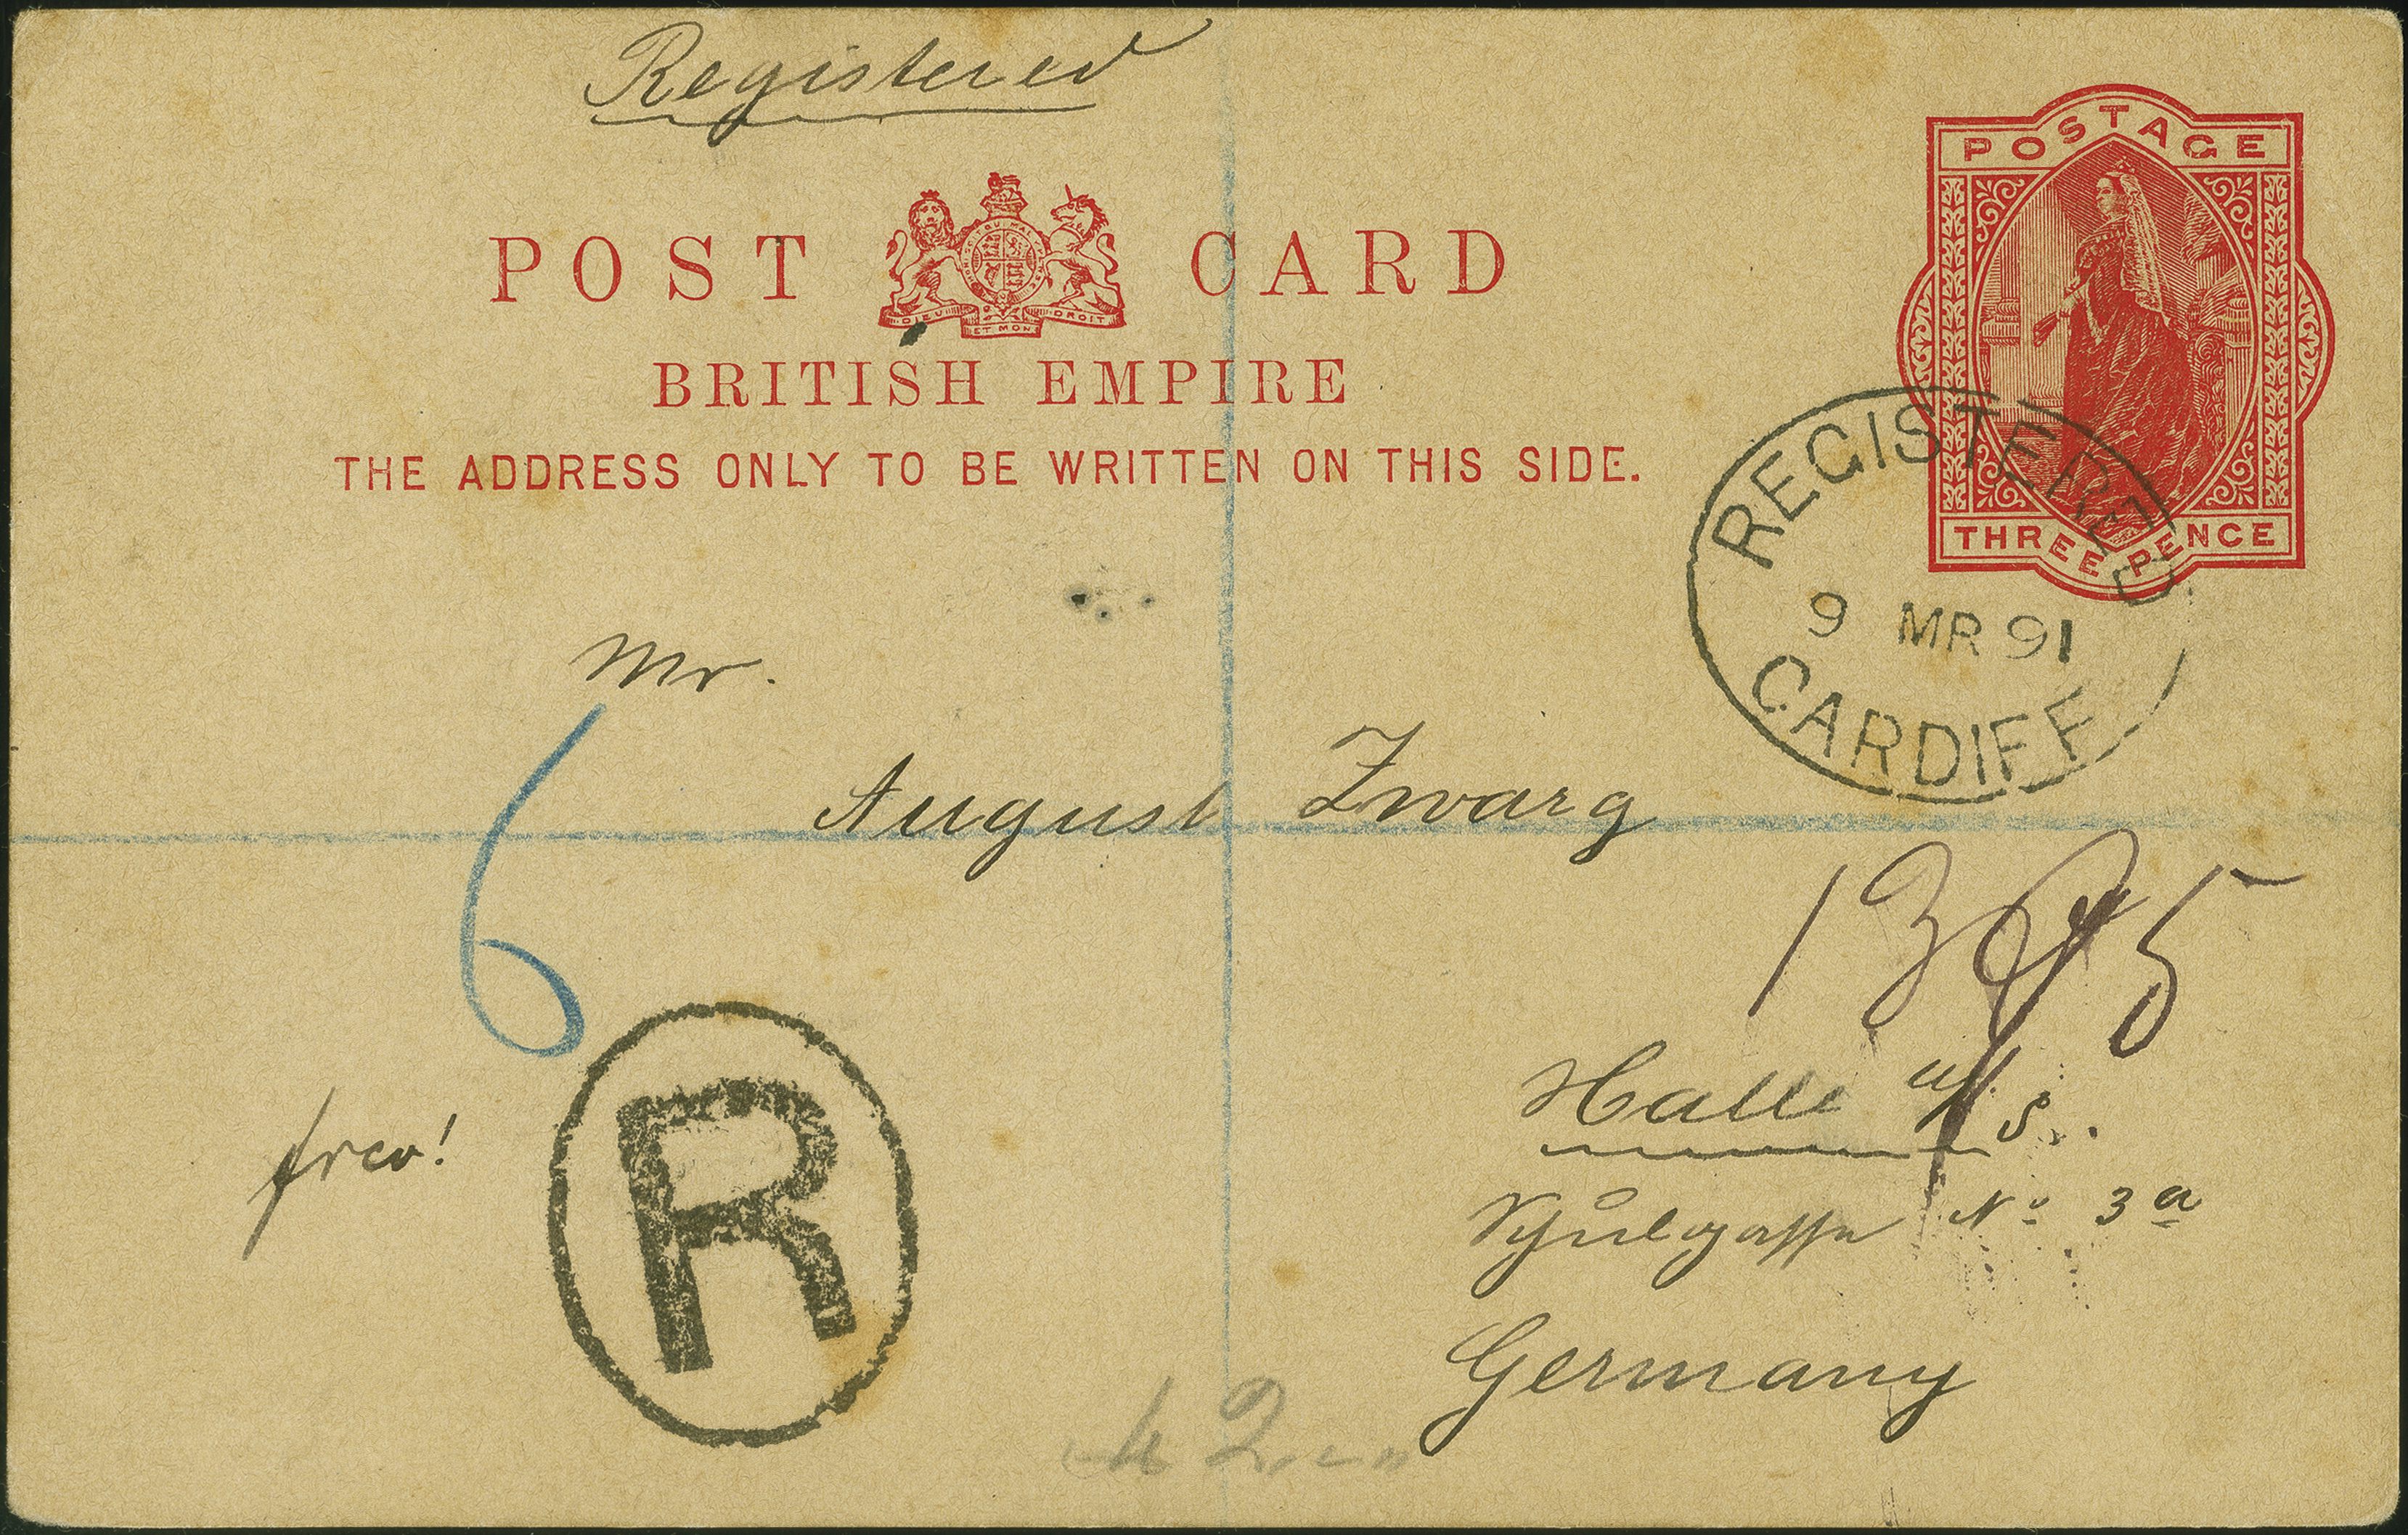 Registered
POST CARD
DIEU ET MON DROIT
BRITISH EMPIRE
THE ADDRESS ONLY TO BE WRITTEN ON THIS SIDE.
POSTAGE
THREE PENCE
REGISTERED
9 MR 91
CARDIFF
Mr.
August Zwarg
6
Halle a/S.
frco!
R
Schulgasse No 3a
Germany